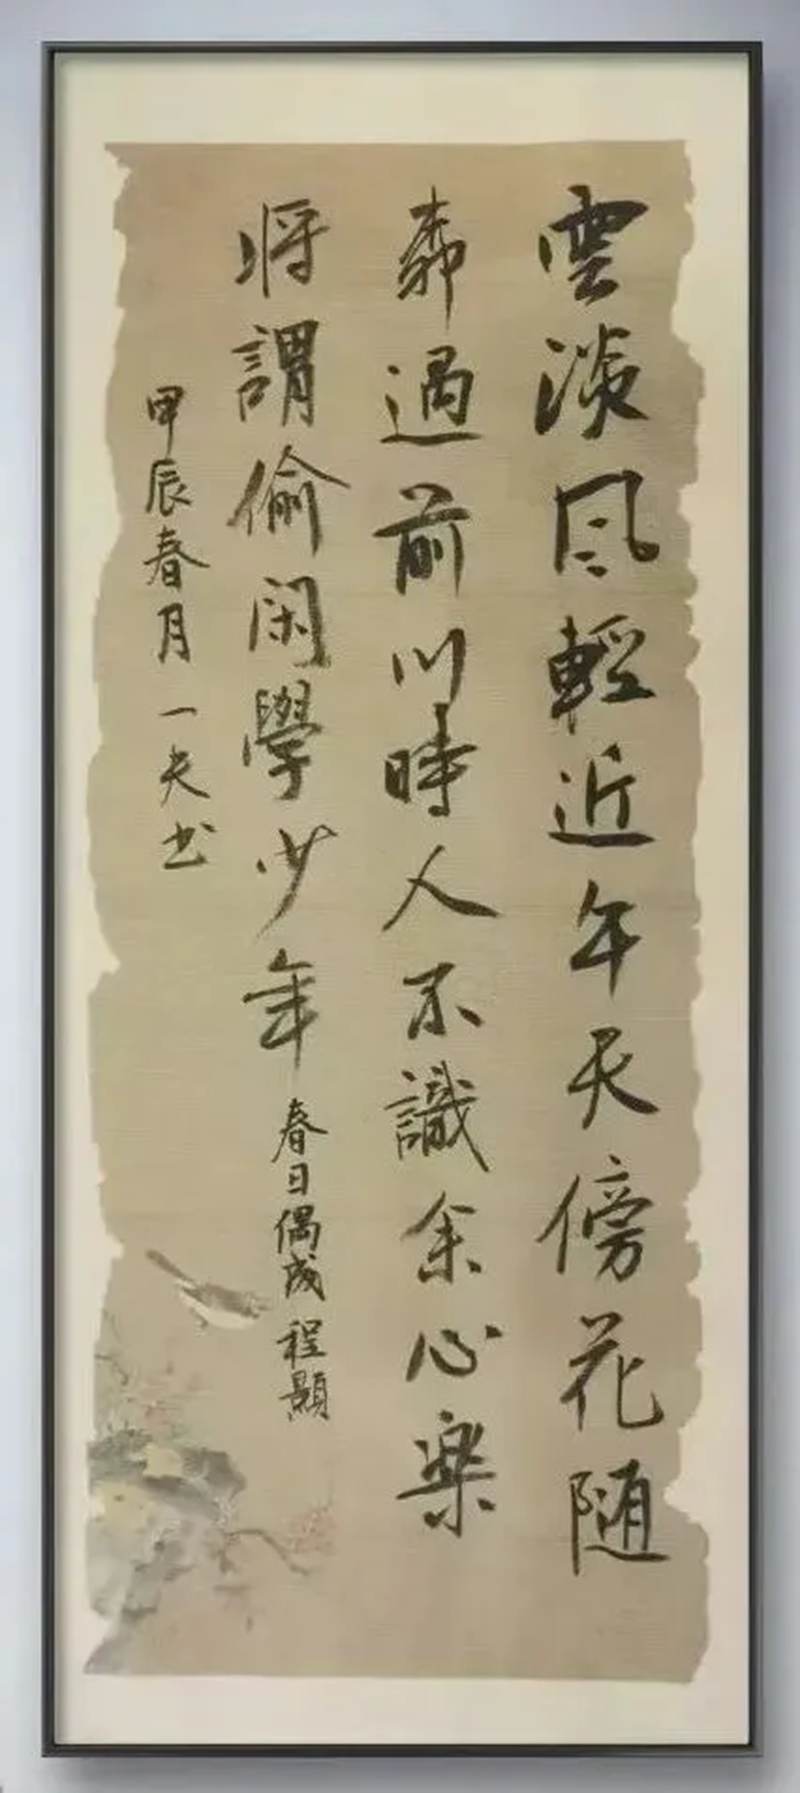 雲淡風輕近午天傍花随
柳過前川時人不識余心樂
將謂偷閑學少年 春日偶成 程顥
甲辰春月 一夫书